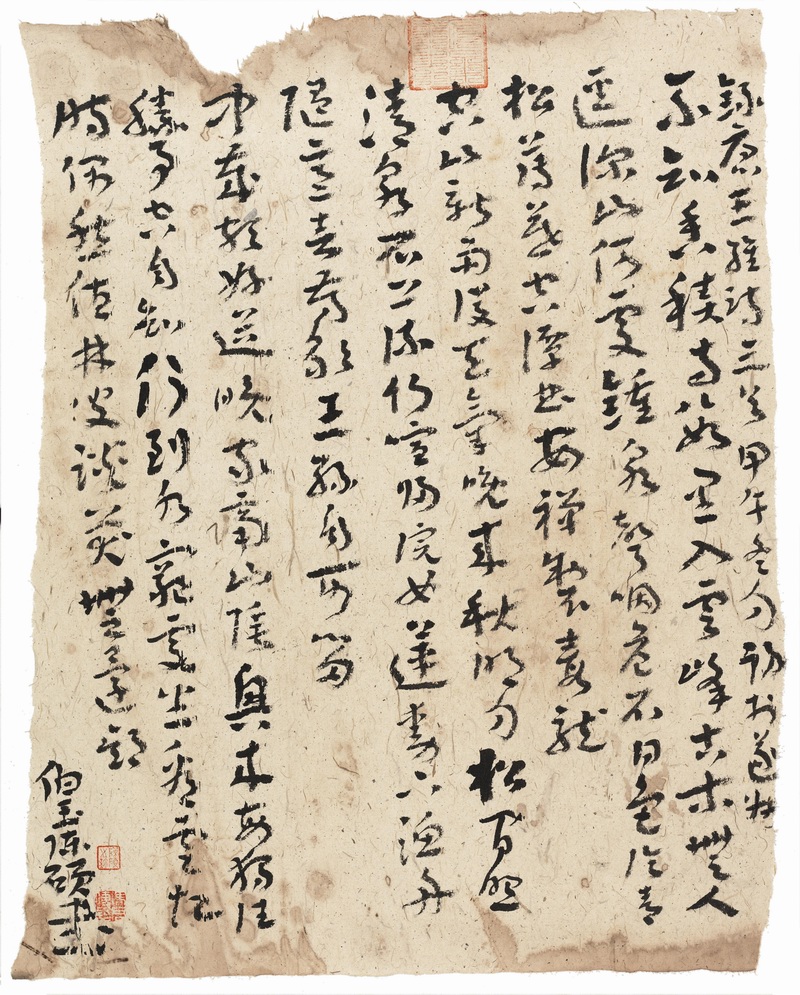 錄唐王維詩三首甲午冬月
不知香積寺數里入雲峰古木無人
逕深山何處鐘泉聲咽危石日色冷青
松薄暮空潭曲安禪製毒龍
空山新雨後天氣晚來秋明月松間照
清泉石上流竹喧歸浣女蓮動下漁舟
隨意春芳歇王孫自可留
中歲頗好道晚家南山陲興來每獨往
勝事空自知行到水窮處坐看雲起
時偶然值林叟談笑無還期
伯玉陳碩書